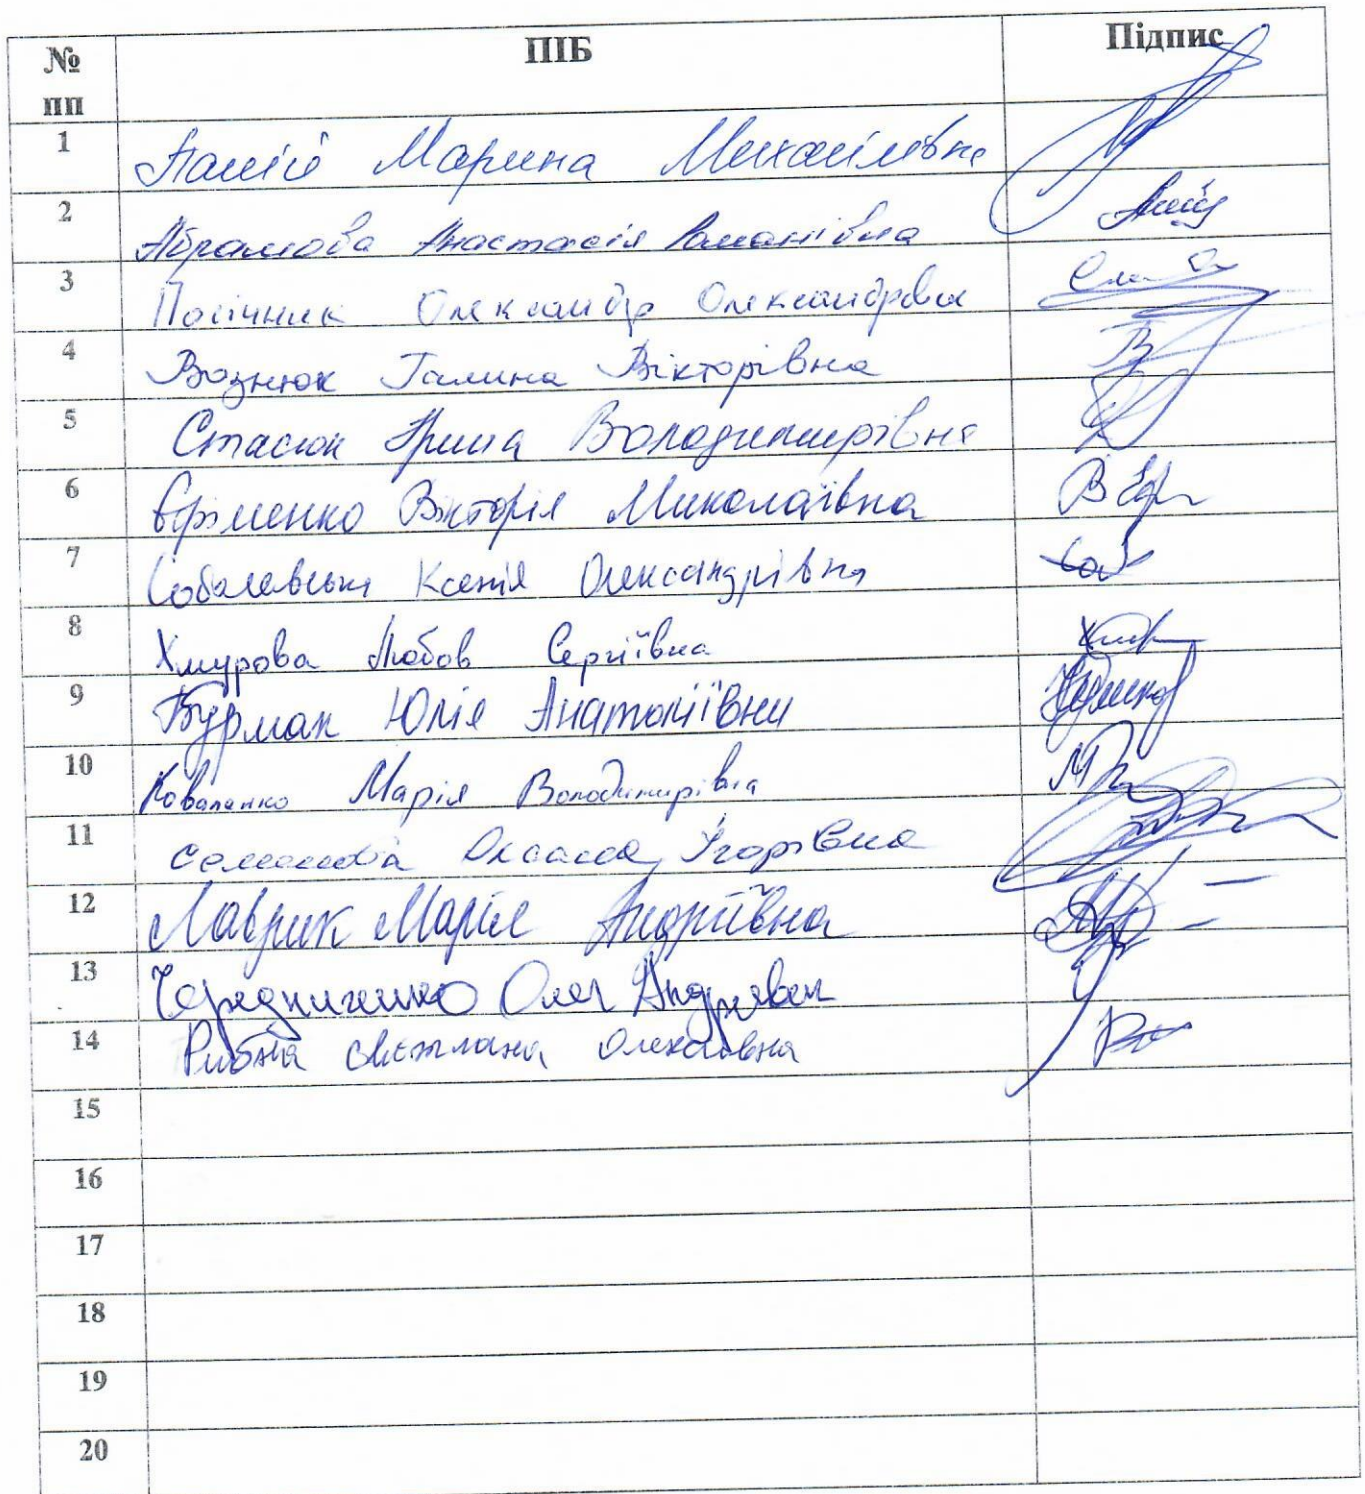 № пп ПІБ Підпис
1 Марина Михайлівна
2 Абрамова Анастасія Романівна
3 Олександр Олександрович
4 Вознюк Галина Вікторівна
5 Стасюк Ірина Володимирівна
6 Єфіменко Вікторія Миколаївна
7 Соболевська Ксенія Олександрівна
8 Хмурова Любов Сергіївна
9 Бурмак Юлія Анатоліївни
10 Коваленко Марія Володимирівна
11 Оксана Ігорівна
12 Лаврик Марія Андріївна
13 Чередниченко Олег Андрієвич
14 Рибна Світлана Олексіївна
15
16
17
18
19
20